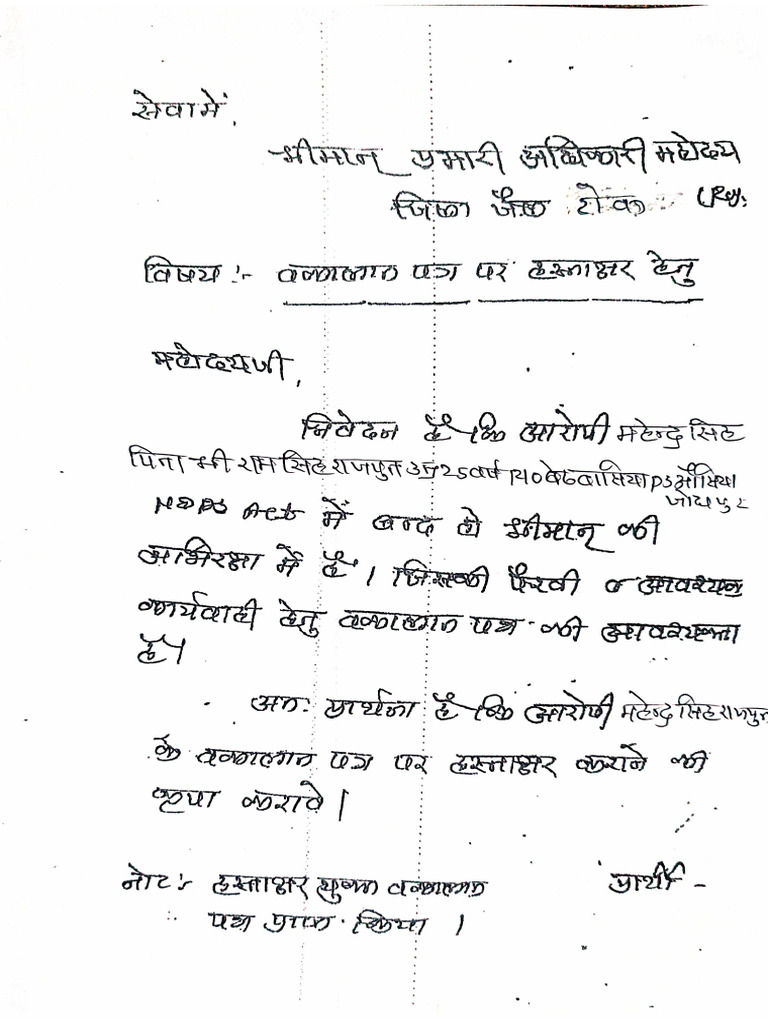 सेवामें,
श्रीमान् प्रभारी अधिकारी महोदय
जिला जैल टोंक (राज.
विषय :- वकालात पत्र पर हस्ताक्षर हेतु
महोदयजी,
निवेदन है कि आरोपी महेन्द्र सिह
पिता श्री रामसिह राजपुत उम्र 25 वर्ष PS औसिया
जोधपुर
NDPS Act में बन्द हो श्रीमान् की
अभिरक्षा में है। जिसकी पैरवी व आवश्यक
कार्यवाही हेतु वकालात पत्र की आवश्यकता
है।
अतः प्रार्थना है कि आरोपी महेन्द्र सिह राजपुत
के वकालात पत्र पर हस्ताक्षर कराने की
कृपा करावे।
नोट :- हस्ताक्षर युक्त वकालात प्रार्थी -
पत्र प्राप्त किया ।